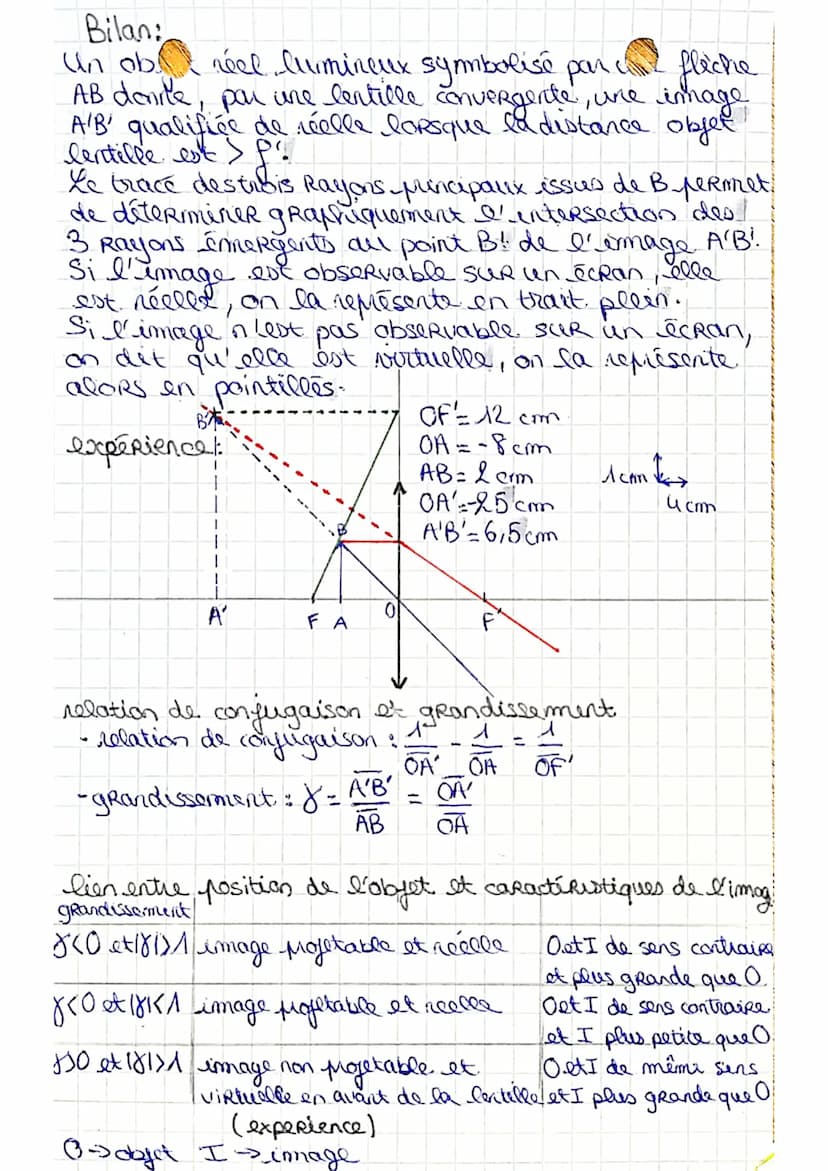 Bilan:
Un ob réel lumineux symmbolisé par flèche
AB donne, par une lentille convergente, une image
A'B' qualifiée de réelle lorsque la distance objet
lentille est > f'.
Le tracé des trois Rayons principaux issus de B permet
de déterminer graphiquement l'intersection des
3 Rayons émergents au point B' de l'image A'B'.
Si l'image est observable sur un écran, elle
est réelle, on la représente en trait plein.
Si l'image n'est pas observable sur un écran,
on dit qu'elle est virtuelle, on la représente
alors en pointillés.
B'
expérience:
OF'= 12 cm
OA = -8 cm
AB = 2 cm
OA'=-25 cm
A'B'= 6,5 cm
1cm
4cm
B
A'
F A
O
F'
relation de conjugaison et grandissement
- relation de conjugaison : 1/OA' - 1/OA = 1/OF'
- grandissement : γ = A'B'/AB = OA'/OA
lien entre position de l'objet et caractéristiques de l'imag
grandissement
γ<0 et |γ|>1 image projetable et réelle O et I de sens contraire
et plus grande que O
γ<0 et |γ|<1 image projetable et reelle O et I de sens contraire
et I plus petite que O
γ>0 et |γ|>1 image non projetable et O et I de même sens
virtuelle en avant de la lentille et I plus grande que O
(experience)
O → objet I → image